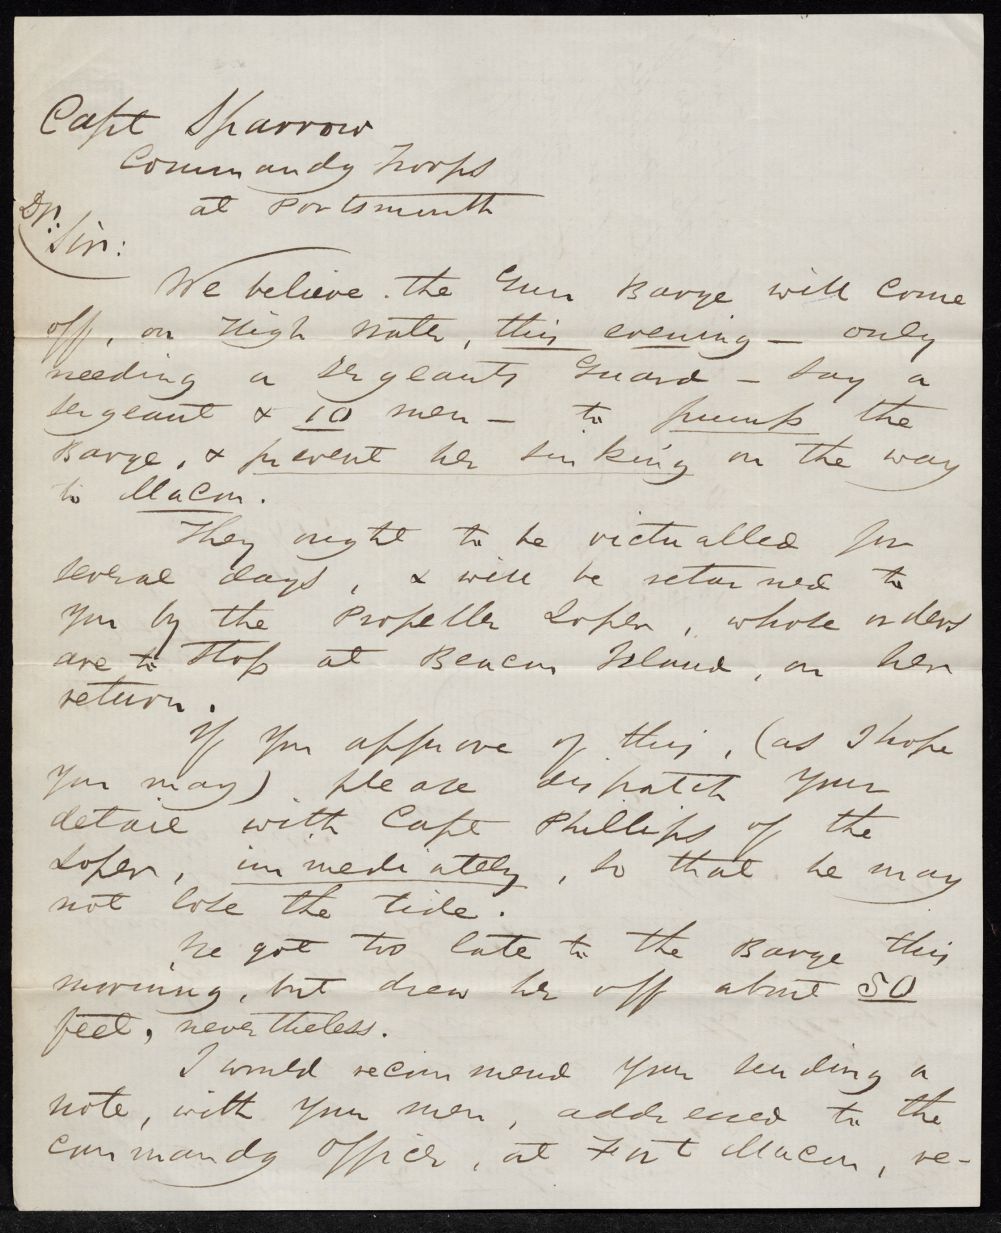 Capt Sparrow
Commandg Troops
at Portsmouth
Dr. Sir:
We believe the Gun Barge will come
off, on High Water, this evening — only
needing a Sergeants Guard — say a
sergeant & 10 men — to pump the
Barge, & prevent her sinking on the way
to Macon.
They ought to be victualled for
several days, & will be returned to
you by the Propeller Loper, whose orders
are to stop at Beacon Island, on her
return.
If you approve of this, (as I hope
you may) please dispatch your
detail with Capt Phillips of the
Loper, immediately, so that he may
not lose the tide.
We got too late to the Barge this
morning, but drew her off about 50
feet, nevertheless.
I would recommend your sending a
note, with your men, addressed to the
commandg officer, at Fort Macon, re-